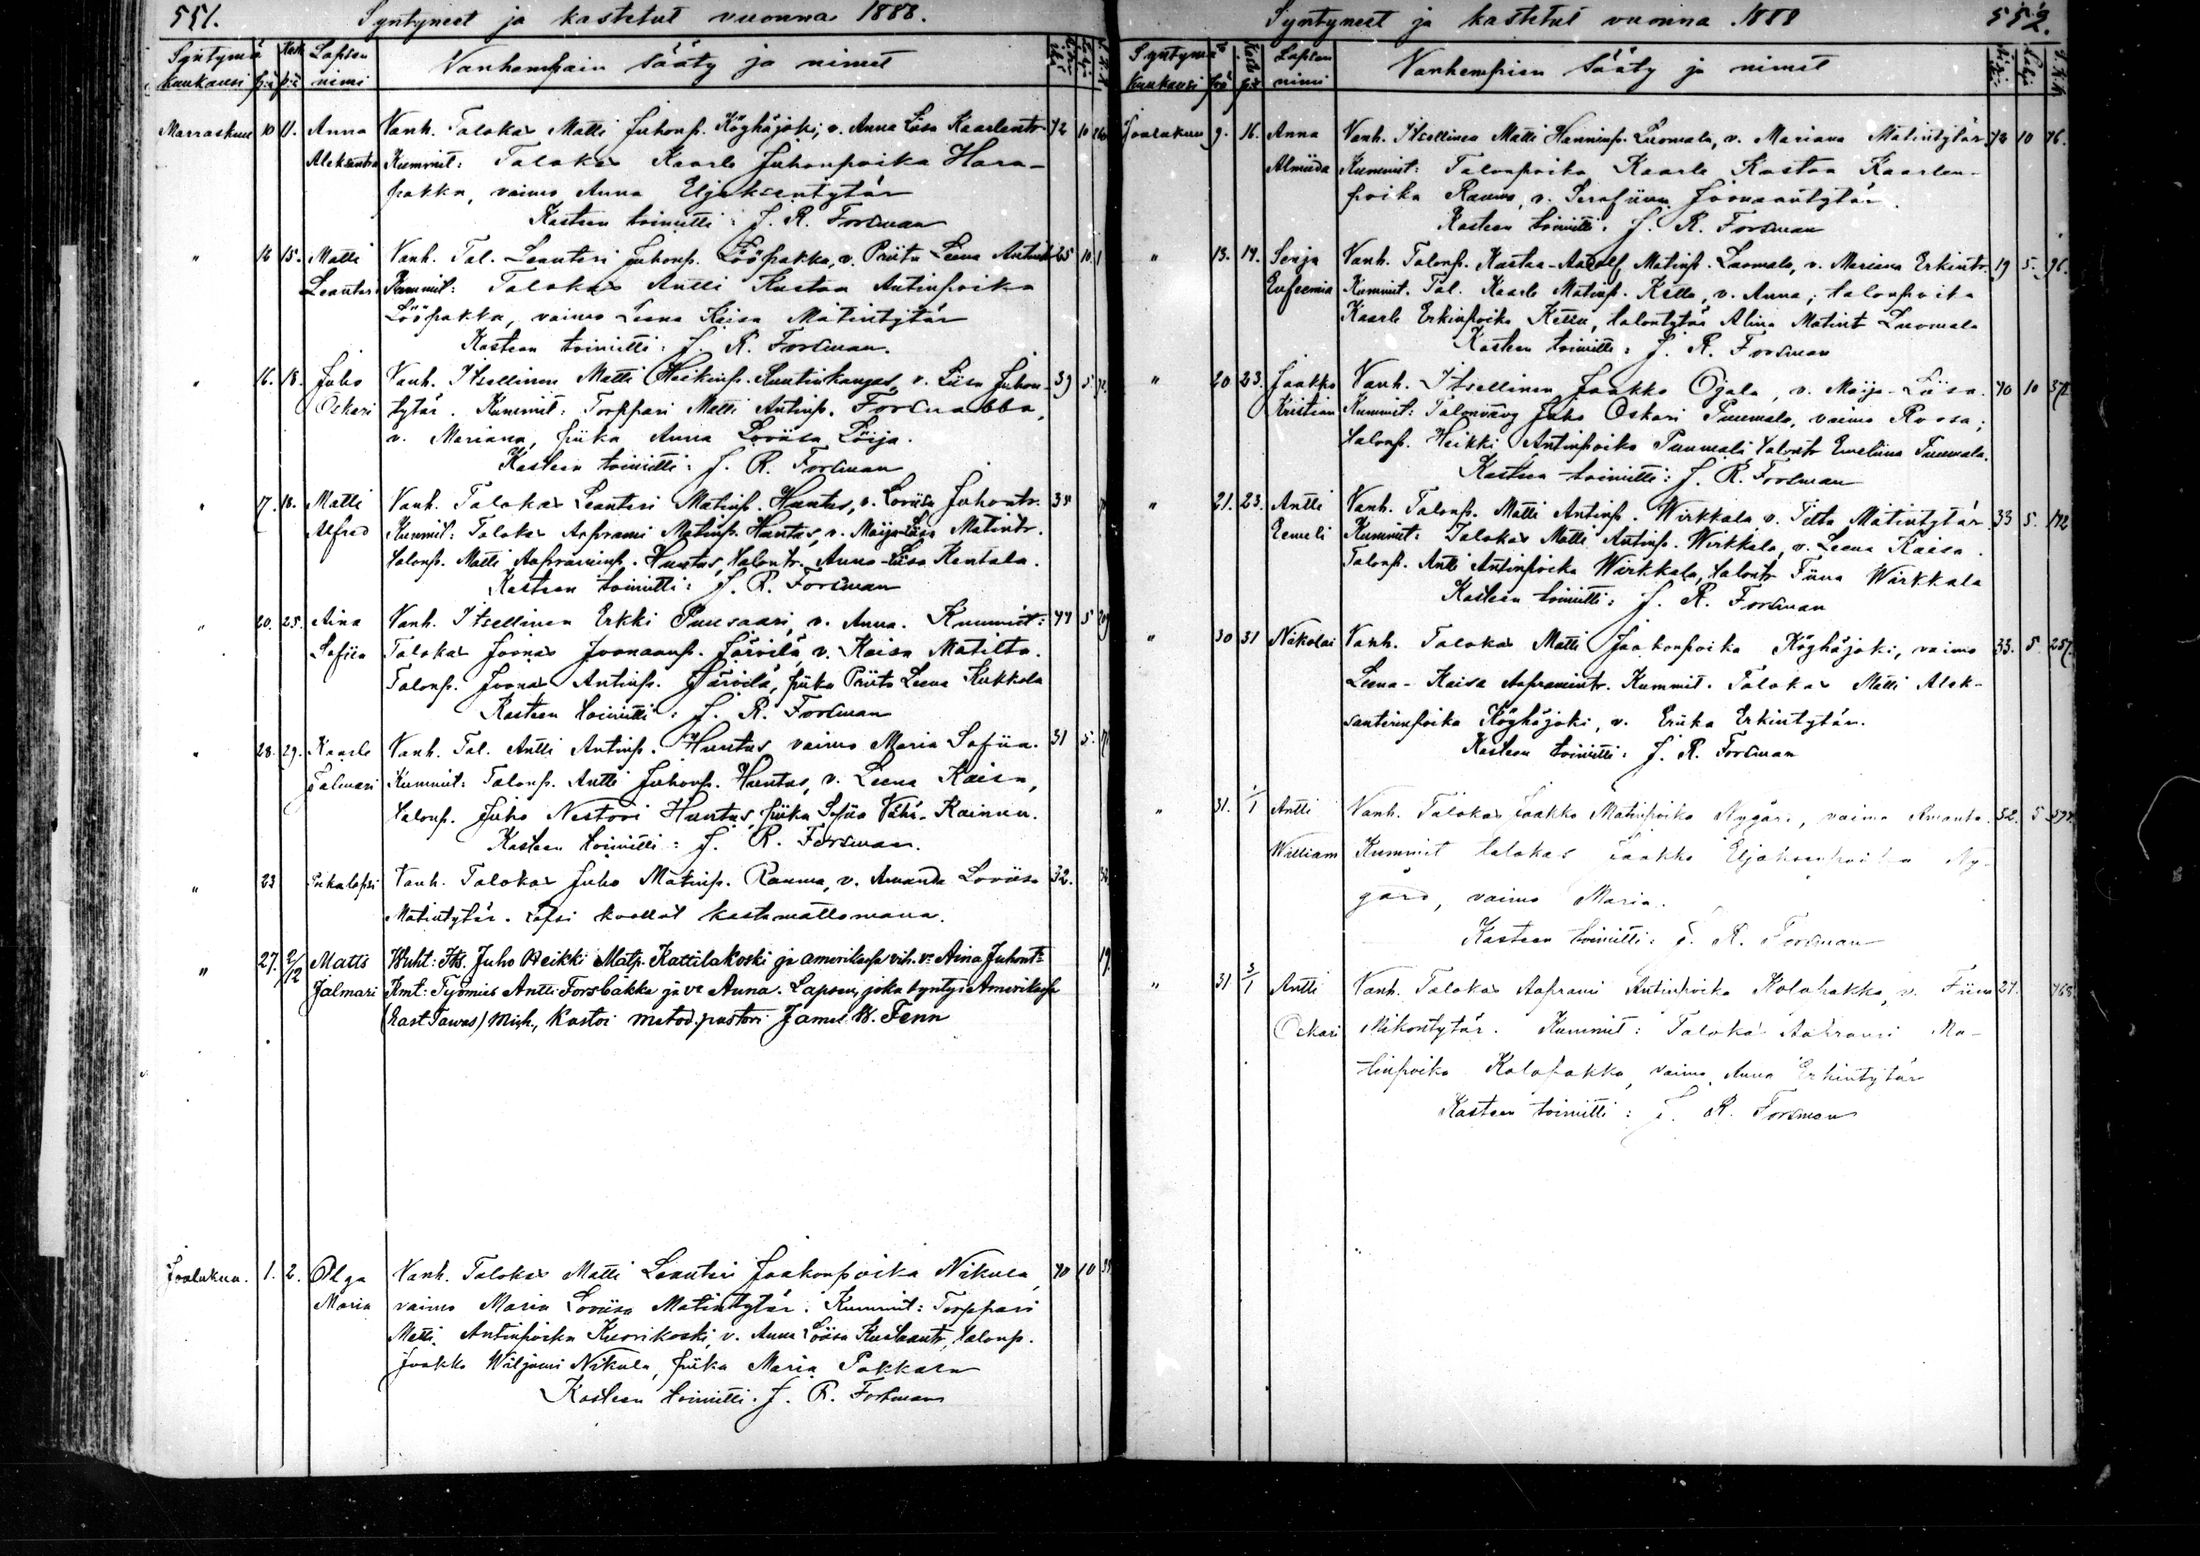 551. Syntyneet ja kastetut vuonna 1888.
Syntymä Kast. Lapsen Vanhempain sääty ja nimet
kuukausi p:ä p:ä nimi
Marraskuu 10 11. Anna Vanh. Talokas Matti Juhonp. Köyhäjoki, v. Anna Liisa Kaarlentr. 42 10
Aleksandra Kummit: Talokas Kaarle Juhonpoika Hara-
pakka, vaimo Anna Eljaksentytär
Kasteen toimitti: J. R. Forsman
" 12 15. Matti Vanh. Tal. Leanteri Juhonp. Lööpakka, v. Priita Leena Antintr 25 10
Leanteri Kummit: Talokas Antti Kustaa Antinpoika
Lööpakka, vaimo Leena Kaisa Matintytär
Kasteen toimitti: J. R. Forsman.
" 16. 18. Juho Vanh. Itsellinen Matti Heikinp. Huntinkangas, v. Liisa Juhon- 39 5.
Oskari tytär. Kummit: Torppari Matti Antinp.
v. Mariana, piika Anna Loviisa Löija.
Kasteen toimitti: J. R. Forsman
" 17. 18. Matti Vanh. Talokas Leanteri Matinp. Huntus, v. Loviisa Juhontr. 38
Alfred Kummit: Talokas Aaprami Matinp. Huntus, v. Maija-Liisa Matintr.
talonp. Matti Aapraminp. Huntus, talontr. Anna-Liisa Kentala.
Kasteen toimitti: J. R. Forsman
" 20. 25. Aina Vanh. Itsellinen Erkki Puusaari, v. Anna. Kummit: 44 5
Sofiia Talokas Joonas Joonaanp. Järvilä, v. Kaisa Matilta.
Talonp. Joonas Antinp. Järvilä, piika Priita Leena Kukkola
Kasteen toimitti: J. R. Forsman
" 28. 29. Kaarle Vanh. Tal. Antti Antinp. Huntus vaimo Maria Sofiia. 31 5.
Jalmari Kummit: Talonp. Antti Juhonp. Huntus, v. Leena Kaisa,
talonp. Juho Nestori Huntus, piika Sofiia Vähä-Rainen.
Kasteen toimitti: J. R. Forsman.
" 23 Poikalapsi Vanh. Talokas Juho Matinp. Rauma, v. Amanda Loviisa 32.
Matintytär. Lapsi kuollut kastamattomana.
" 27. 2/12 Matts Wuht: Its. Juho Heikki Matp. Kattilakoski ja amerikassa vih. v:o Aina Juhont: 19.
Jalmari Kmt: Työmies Antti Forsbakka ja v:o Anna. Lapsen, joka syntyi Amerikassa
(East Tawas) Mich., kastoi metod. pastori James W. Fenn
Joulukuu. 1. 2. Olga Vanh. Talokas Matti Leanteri Jaakonpoika Nikula, 40 10
Maria vaimo Maria Loviisa Matintytär. Kummit: Torppari
Matti Antinpoika Kuorikoski, v. Anna Loviisa Kustaantr, talonp.
Jaakko Wiljami Nikula, piika Maria Pakkala
Kasteen toimitti: J. R. Forsman
Syntyneet ja kastetut vuonna 1888 552.
Syntymä Kast. Lapsen Vanhempien sääty ja nimet
kuukausi p:ä p:ä nimi
Joulukuu 9. 16. Anna Vanh. Itsellinen Matti Hanninp. Luomala, v. Mariana Matintytär. 42 10 76.
Almiida Kummit: Talonpoika Kaarle Kustaa Kaarlen-
poika Rauma, v. Serafiina Joonaantytär.
Kasteen toimitti: J. R. Forsman
" 13. 14. Senja Vanh. Talonp. Kustaa-Aadolf Matinp. Luomala, v. Mariana Erkintr. 19 5. 96.
Eufeemia Kummit. Tal. Kaarle Matinp. Kellu, v. Anna, talonpoika
Kaarle Erkinpoika Kettu, talontytär Alina Matint Luomala
Kasteen toimitti: J. R. Forsman
" 20 23. Jaakko Vanh. Itsellinen Jaakko Ojala, v. Maija-Liisa. 40 10
Kristian Kummit: Talonvävy Juho Oskari Puumala, vaimo Roosa;
talonp. Heikki Antinpoika Puumala talontr Emeliina Puumala.
Kasteen toimitti: J. R. Forsman
" 21. 23. Antti Vanh. Talonp. Matti Antinp. Wirkkala v. Tilta Matintytär 33 5. 142
Eemeli Kummit: Talokas Matti Antinp. Wirkkala, v. Leena Kaisa.
Talonp. Antti Antinpoika Wirkkala, talontr Fiina Wirkkala
Kasteen toimitti: J. R. Forsman
" 30 31 Nikolai Vanh. Talokas Matti Jaakonpoika Köyhäjoki, vaimo 33. 5. 257.
Leena-Kaisa Aapramintr. Kummit. Talokas Matti Alek-
santerinpoika Köyhäjoki, v. Eriika Erkintytär.
Kasteen toimitti: J. R. Forsman
" 31. 1/1 Antti Vanh. Talokas Jaakko Matinpoika Nygård, vaimo Amanda. 32. 5
William Kummit talokas Jaakko Eljaksenpoika Ny-
gård, vaimo Maria.
Kasteen toimitti: J. R. Forsman
" 31 3/1 Antti Vanh. Talokas Aaprami Antinpoika Kalapakka, v. Fiina 27. 468
Oskari Mikontytär. Kummit: Talokas Aaprami Ma-
tinpoika Kalapakka, vaimo Anna Erkintytär
Kasteen toimitti: J. R. Forsman